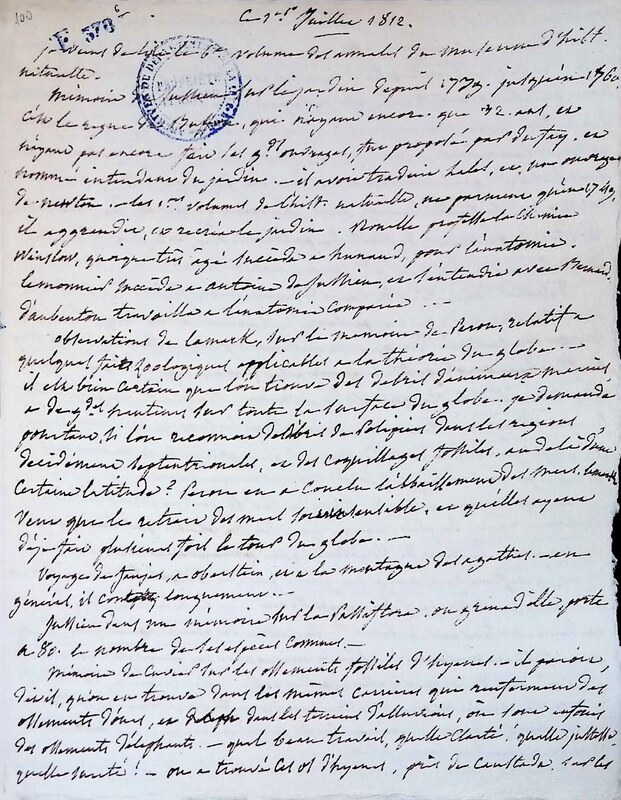 100
E 378 6
Ce 1er Juillet 1812.
je viens de lire le 6e volume des annales du museum d'hist.
naturelle.
Mémoire de Jussieu sur le jardin depuis 1739. jusqu'en 1760
C'est le regne de Buffon, qui n'ayant encore que 32. ans, et
n'ayant pas encore fait ses gds ouvrages, fut proposé par du fay, et
nommé intendant du jardin. - il avoit traduit hales, et un ouvrage
de newton. - les 1ers volumes de l'hist. naturelle, ne parurent qu'en 1749,
il aggrandit, et recréa le jardin. Rouelle professa la Chimie
Winslow, quoique très agé succéda a hunaud, pour l'anatomie.
lemonnier succéda a antoine de Jussieu, et s'entendit avec Bernard.
d'aubenton travailla a l'anatomie Comparée. - -
observations de lamark, sur le memoire de Peron, relatif a
quelques faits Zoologiques applicables a la théorie du globe. - -
il est bien certain que l'on trouve des debris d'animaux marins
a de gdes hauteurs sur toute la surface du globe. je demande
pourtant, si l'on reconnoit des débris de Polypiers dans les regions
décidément septentrionales, et des coquillages fossiles, au delà d'une
Certaine latitude? Peron en a Conclu l'abaissement des mers. lamark
veut que la retraite des mers soit insensable, et qu'elles ayent
déjà fait plusieurs fois le tour du globe. - -
Voyages de faujas, a oberstein, et a la montagne des agathes. - en
général, il conte longuement. - -
Jussieu dans un mémoire sur la Passiflore, ou grenadille, porte
a 80. le nombre de ses espèces Connues. -
Mémoire de Cuvier sur les ossements fossiles d'hyenes. - il paroit,
dit il, qu'on en trouve dans les mêmes carrieres qui renferment des
ossements d'ours, et dans les terrains d'alluvions, où sont enfouis
des ossements d'éléphants. - quel beau travail, quelle clarté, quelle justesse,
quelle sureté! - on a trouvé ces os d'hyenes, près de Canstadt, sur les